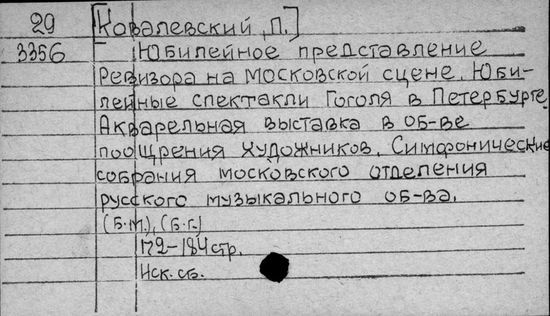 29 [Ковалевский, П.]
3356 Юбилейное представление
Ревизора на московской сцене. Юби-
лейные спектакли Гоголя в Петербурге.
Акварельная выставка в об-ве
поощрения художников. Симфонические
собрания московского отделения
русского музыкального об-ва.
(Б.м.), (Б.г.)
172-184 стр.
Иск. сб.